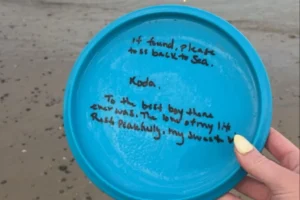 If found, please
toss back to Sea.
Koda.
To the best boy there
ever was. The love of my life
Rest peacefully, my sweet